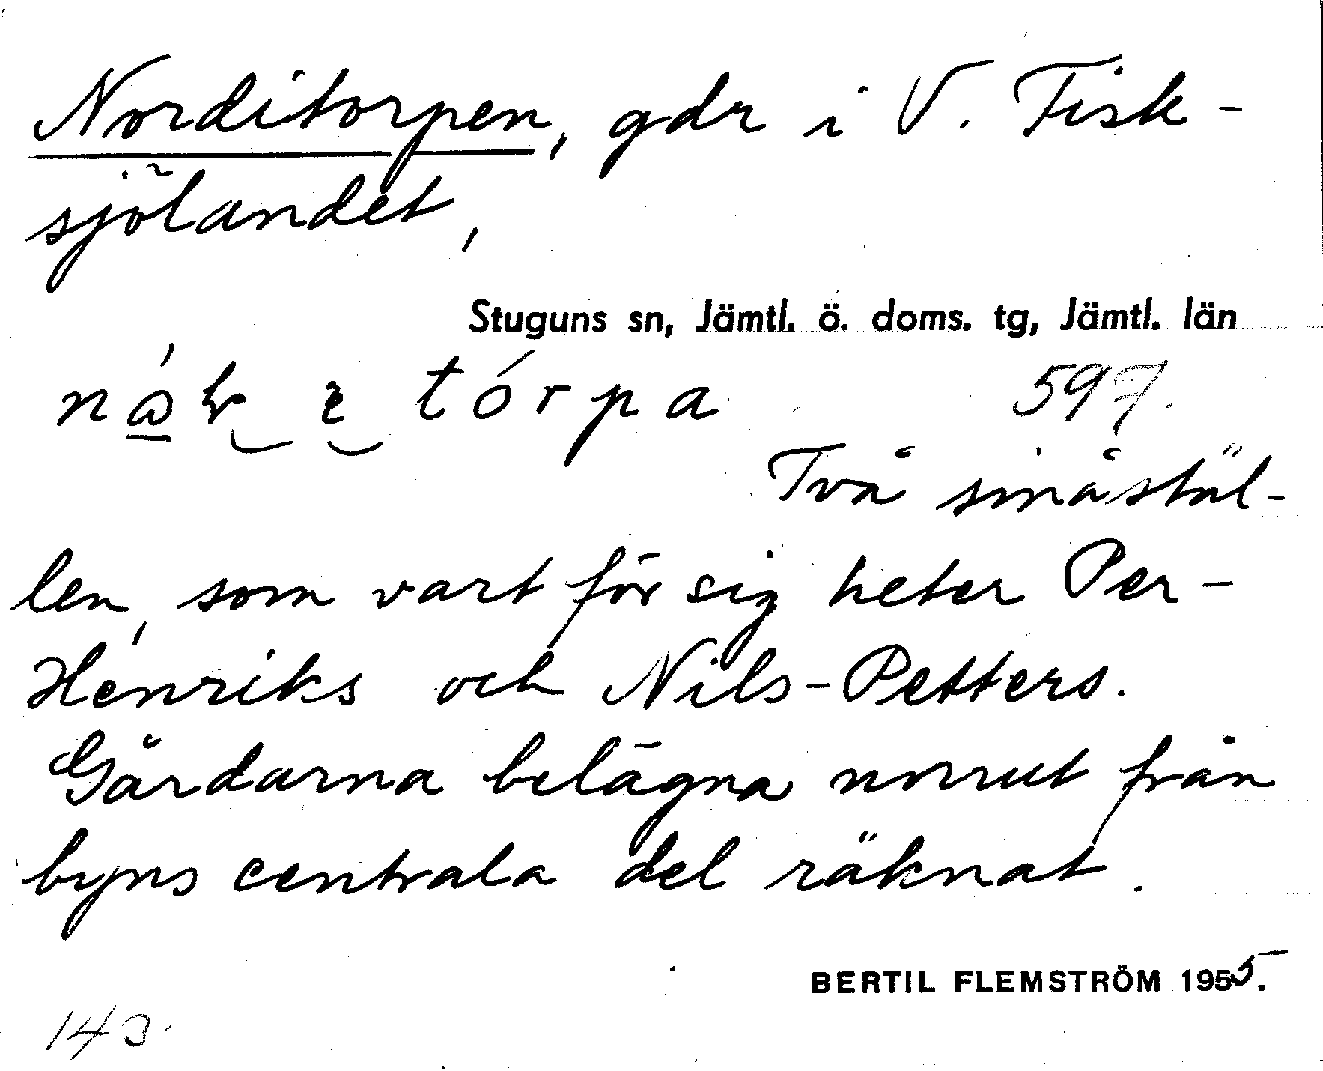 Norditorpen, gdr i V. Fisk-
sjölandet,
Stuguns sn, Jämtl. ö. doms. tg, Jämtl. län
tórpa 597.
Två småstäl-
len, som vart för sig heter Per-
Henriks och Nils-Petters.
Gårdarna belägna norrut från
byns centrala del räknat.
BERTIL FLEMSTRÖM 1955.